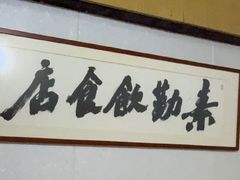 素勤飲食店